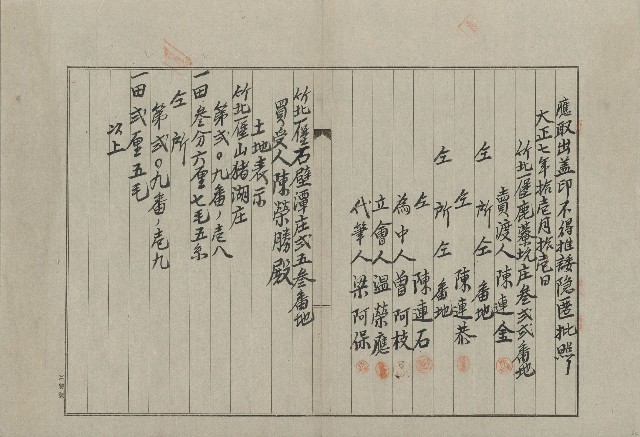 應取出盖印不得推諉隐匿批照
大正七年拾壱月拾壱日
竹北一堡鹿藔坑庄叁弍弍番地
賣渡人陳連金
仝所仝番地
仝陳連恭
仝所仝番地
仝陳連石
為中人曽阿枝
立會人温榮應
代筆人梁阿保
竹北一堡石壁潭庄弍五叁番地
買受人陳榮勝殿
土地表示
竹北一堡山猪湖庄
第弍〇九番ノ壱八
一田叁分六厘七毛五糸
仝所
第弍〇九番ノ壱九
一田弍厘五毛
以上